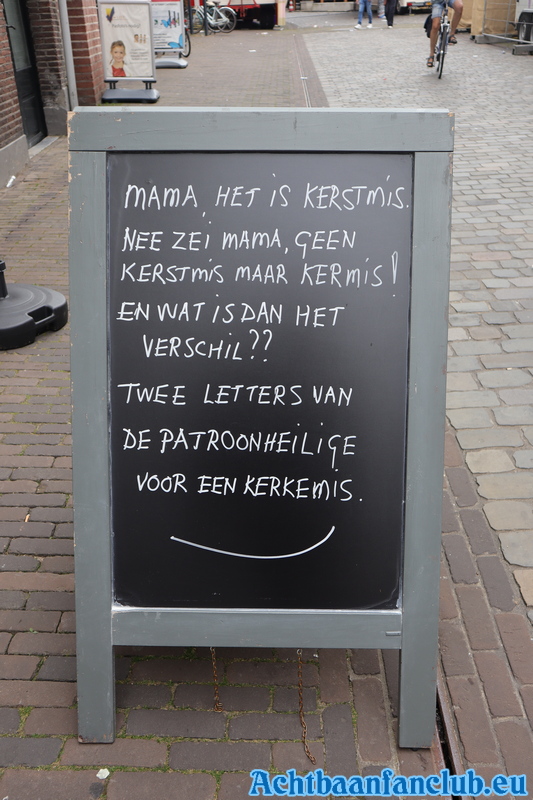 MAMA, HET IS KERSTMIS.
NEE ZEI MAMA, GEEN
KERSTMIS MAAR KERMIS!
EN WAT IS DAN HET
VERSCHIL??
TWEE LETTERS VAN
DE PATROONHEILIGE
VOOR EEN KERKEMIS.
Achtbaanfanclub.eu